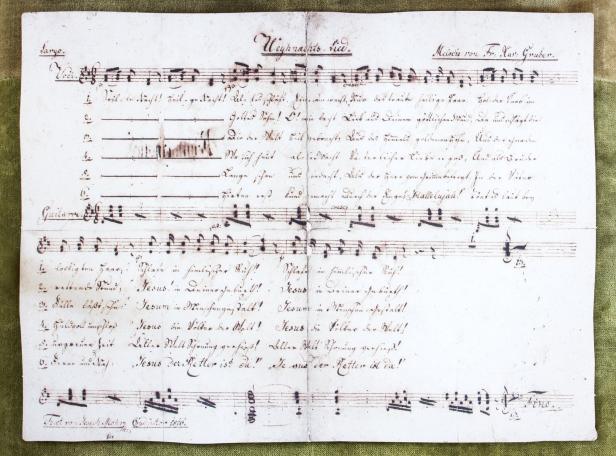 Largo. Weyhnachts-Lied. Melodie von Fr. Xav. Gruber.
Voce
1. Stille Nacht! Heilige Nacht! Alles schläft. Einsam wacht. Nur das traute heilige Paar. Holder Knab' im
2. Gottes Sohn! O! wie lacht Lieb' aus Deinem göttlichen Mund, Da uns schlägt die
3. Die der Welt Heil gebracht, Aus des Himmels goldenen Höhn, Aus der Gnaden
4. Wo sich heut alle Macht Väterlicher Liebe ergoß, Und als Bruder
5. Lange schon uns bedacht, Als der Herr vom Grimme befreyt In der Väter
6. Hirten erst kundgemacht Durch der Engel Halleluja! Tönt es laut von
Guitarre
1. lockigten Haar, Schlafe in himmlischer Ruh! Schlafe in himmlischer Ruh!
2. rettende Stund, Jesus in deiner Geburt! Jesus in deiner Geburt!
3. Fülle läßt seh'n: Jesum in Menschengestalt! Jesum in Menschengestalt!
4. huldvoll umschloß Jesus die Völker der Welt! Jesus die Völker der Welt!
5. urgrauer Zeit Aller Welt Schonung verhieß! Aller Welt Schonung verhieß!
6. Ferne und Nah: "Jesus der Retter ist da!" "Jesus der Retter ist da!"
Fine.
Text von Joseph Mohr Coadjutor 1816.